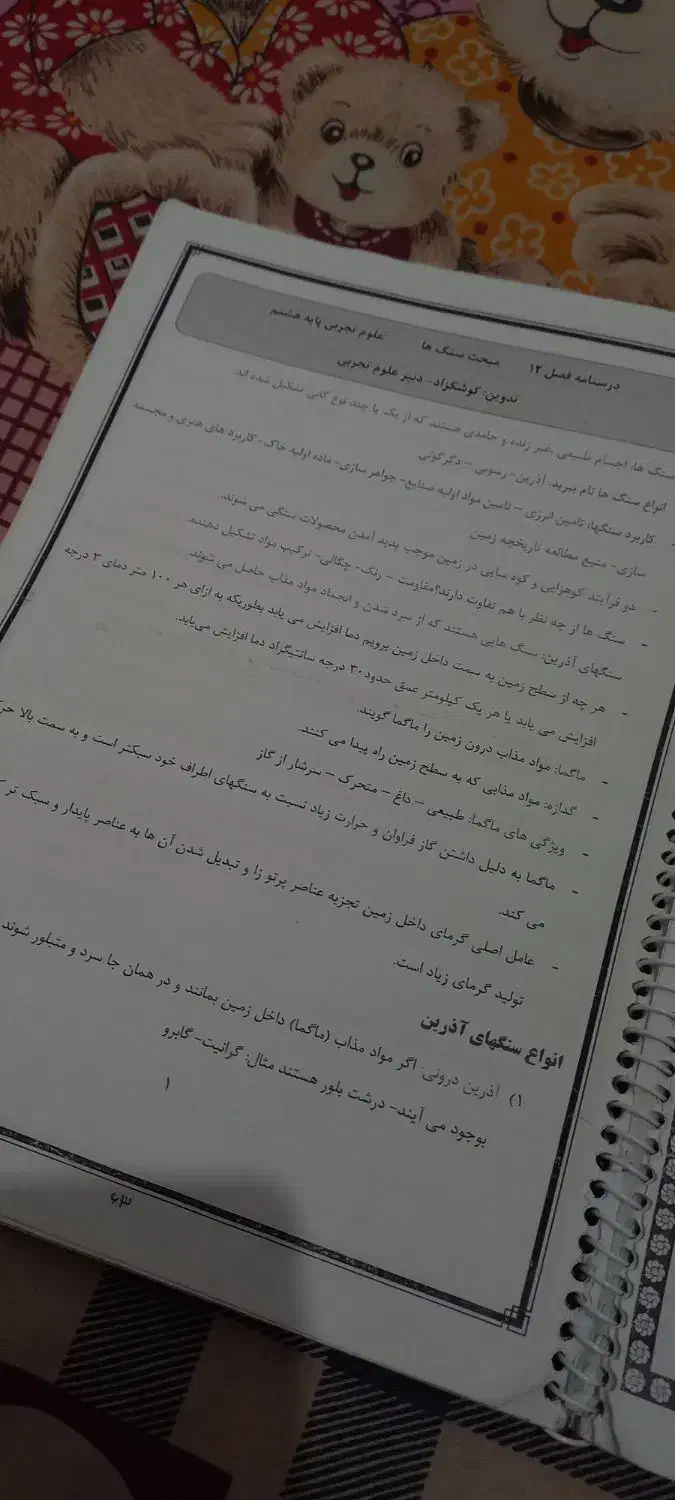 درسنامه فصل ۱۲ مبحث سنگ ها علوم تجربی پایه هشتم
تدوین: کوشکزاد- دبیر علوم تجربی
سنگ ها، اجسام طبیعی ،غیر زنده و جامدی هستند که از یک یا چند نوع کانی تشکیل شده اند.
انواع سنگ ها نام ببرید: آذرین- رسوبی – دگرگونی
- کاربرد سنگها: تامین انرژی – تامین مواد اولیه صنایع- جواهر سازی- ماده اولیه خاک- کاربرد های هنری و مجسمه
سازی- منبع مطالعه تاریخچه زمین
- دو فرآیند کوهزایی و کوه سایی در زمین موجب پدید آمدن محصولات سنگی می شوند.
- سنگ ها از چه نظر با هم تفاوت دارند؟مقاومت – رنگ- چگالی- ترکیب مواد تشکیل دهنده.
سنگهای آذرین: سنگ هایی هستند که از سرد شدن و انجماد مواد مذاب حاصل می شوند.
- هر چه از سطح زمین به سمت داخل زمین برویم دما افزایش می یابد بطوریکه به ازای هر ۱۰۰ متر دمای ۳ درجه
افزایش می یابد یا هر یک کیلومتر عمق حدود۳۰ درجه سانتیگراد دما افزایش می‌یابد.
- ماگما: مواد مذاب درون زمین را ماگما گویند.
- گدازه: مواد مذابی که به سطح زمین راه پیدا می کنند.
- ویژگی های ماگما: طبیعی – داغ – متحرک – سرشار از گاز
- ماگما به دلیل داشتن گاز فراوان و حرارت زیاد نسبت به سنگهای اطراف خود سبکتر است و به سمت بالا
می کند.
- عامل اصلی گرمای داخل زمین تجزیه عناصر پرتو زا و تبدیل شدن آن ها به عناصر پایدار و سبک تر
تولید گرمای زیاد است.
انواع سنگهای آذرین
۱) آذرین درونی: اگر مواد مذاب (ماگما) داخل زمین بمانند و در همان جا سرد و متبلور شوند
بوجود می آیند- درشت بلور هستند مثال: گرانیت- گابرو
۱
۶۳